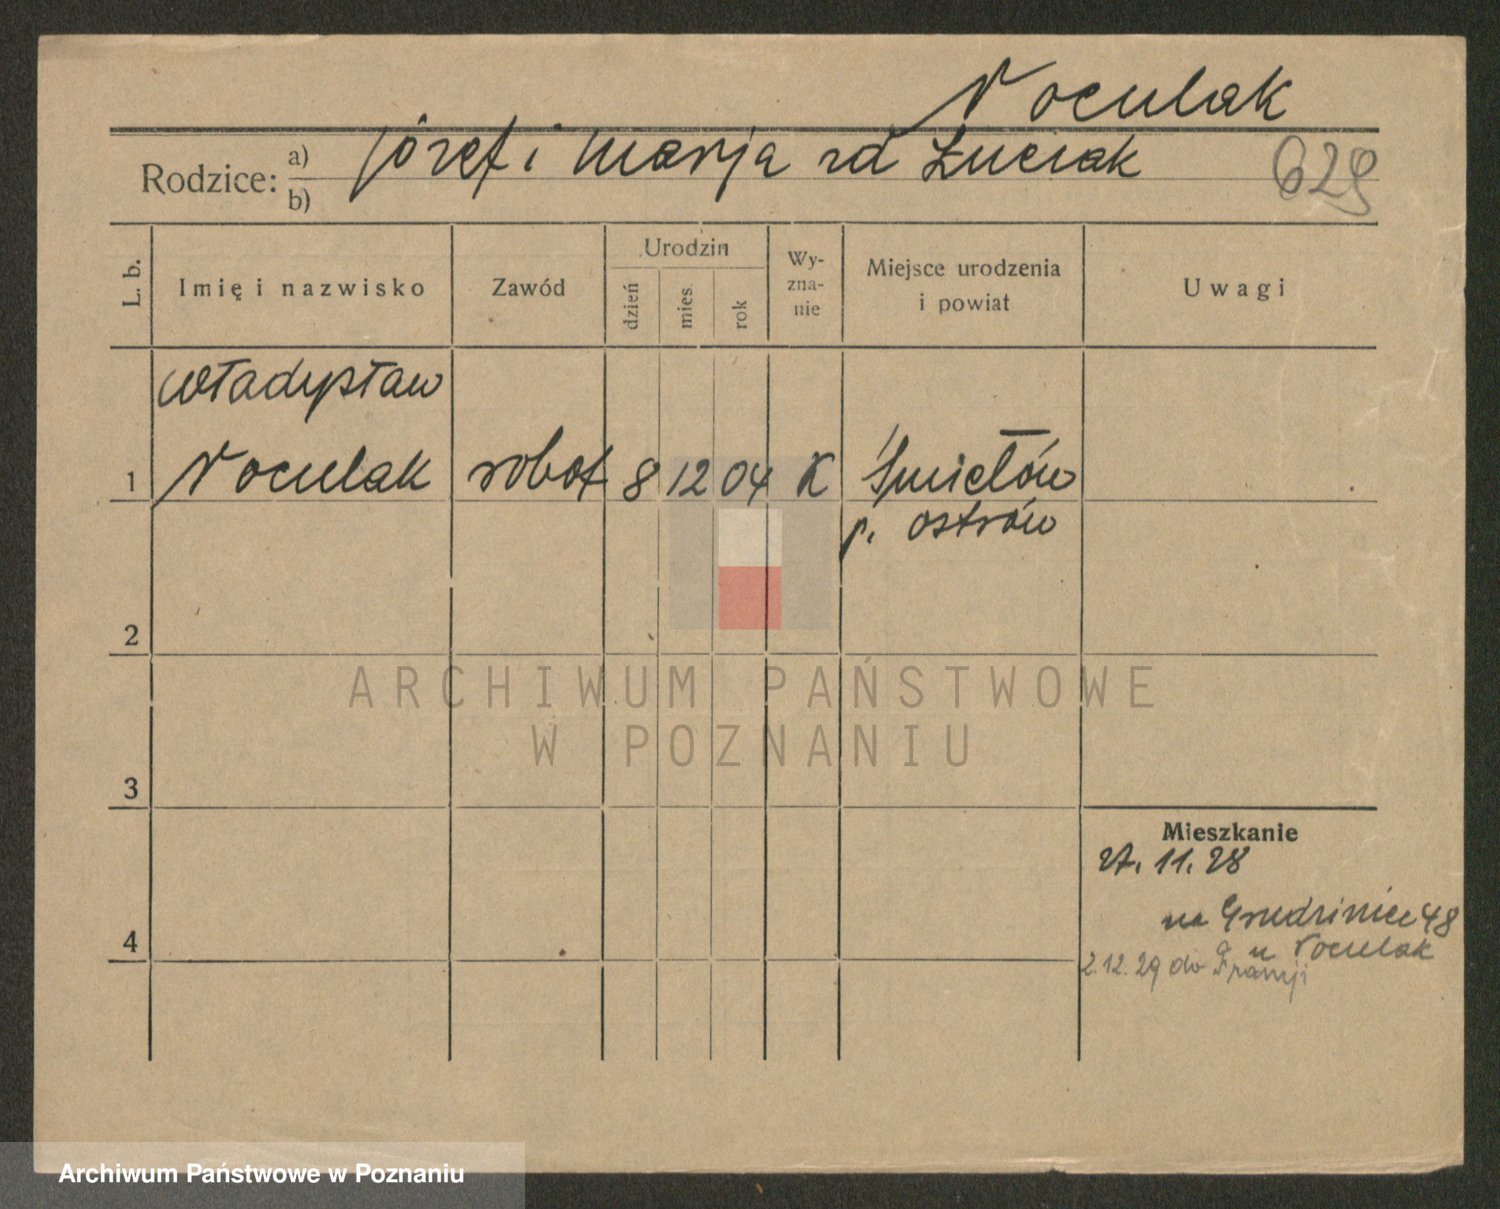 Noculak
Rodzice: a) b) Józef i Marja zd Łuczak
629
L. b.
Imię i nazwisko
Zawód
Urodzin
dzień
mies.
rok
Wy-
zna-
nie
Miejsce urodzenia
i powiat
Uwagi
Władysław
1 Noculak robot 8 12 04 K Śmiełów
p. Ostrów
2
ARCHIWUM PAŃSTWOWE
W POZNANIU
3
Mieszkanie
11. 28
4
na Grudzinice 48
u Noculak
2.12.29 do Francji
Archiwum Państwowe w Poznaniu